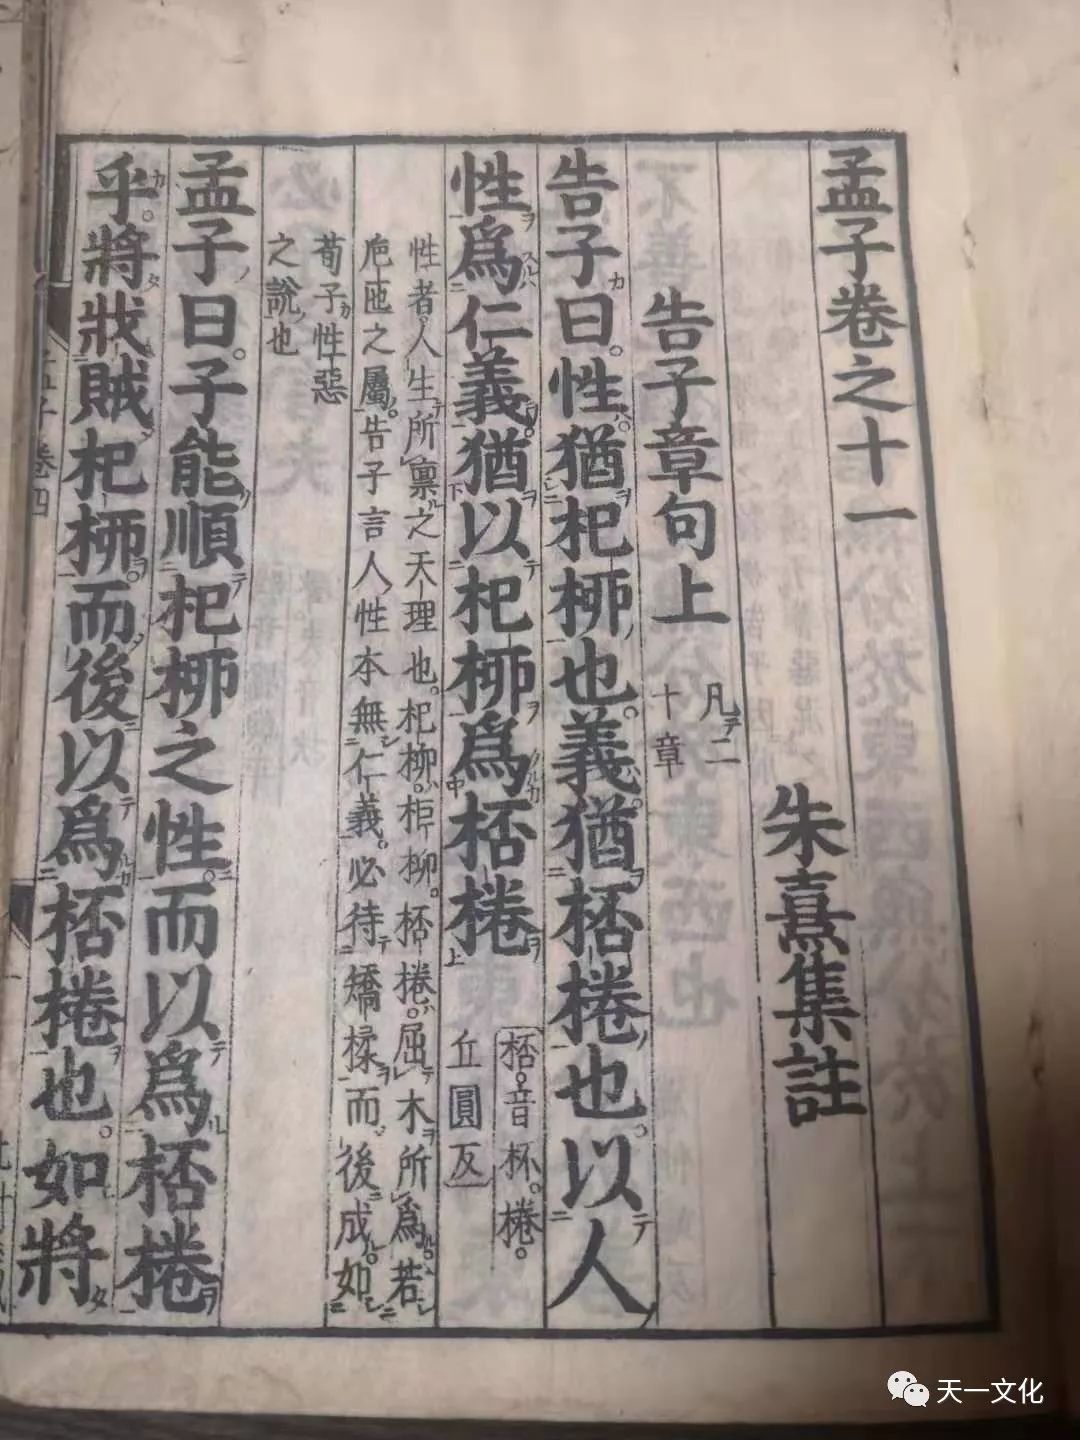 孟子卷之十一
朱熹集註
告子章句上
凡二
十章
告子曰。性猶杞柳也。義猶桮棬也。以人
性爲仁義。猶以杞柳爲桮棬
桮。音杯。棬。
丘圓反
性者。人生所稟之天理也。杞柳。柜柳。桮棬。屈木所爲。若
巵匜之屬。告子言人性本無仁義。必待矯揉而後成。如
荀子性惡
之說也
孟子曰。子能順杞柳之性。而以爲桮棬
乎。將戕賊杞柳。而後以爲桮棬也。如將
天一文化